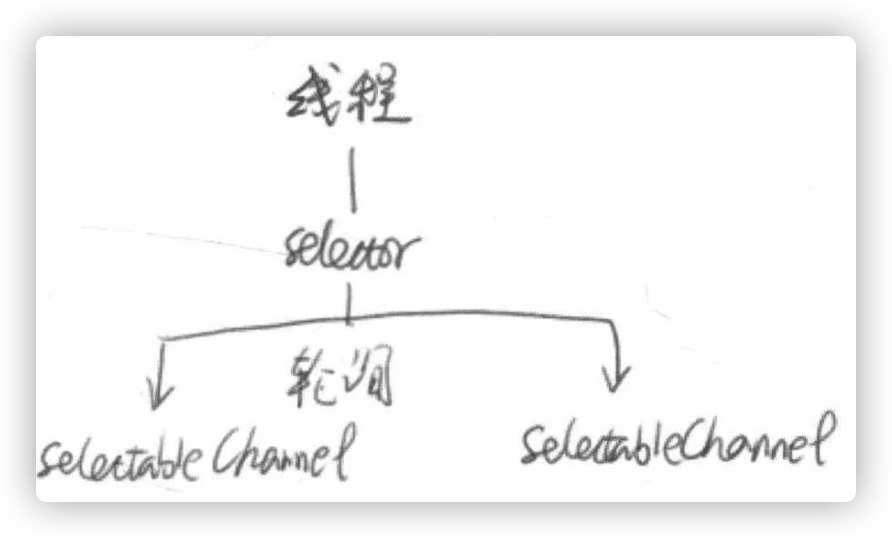 线程
selector
轮询
selectableChannel
selectableChannel